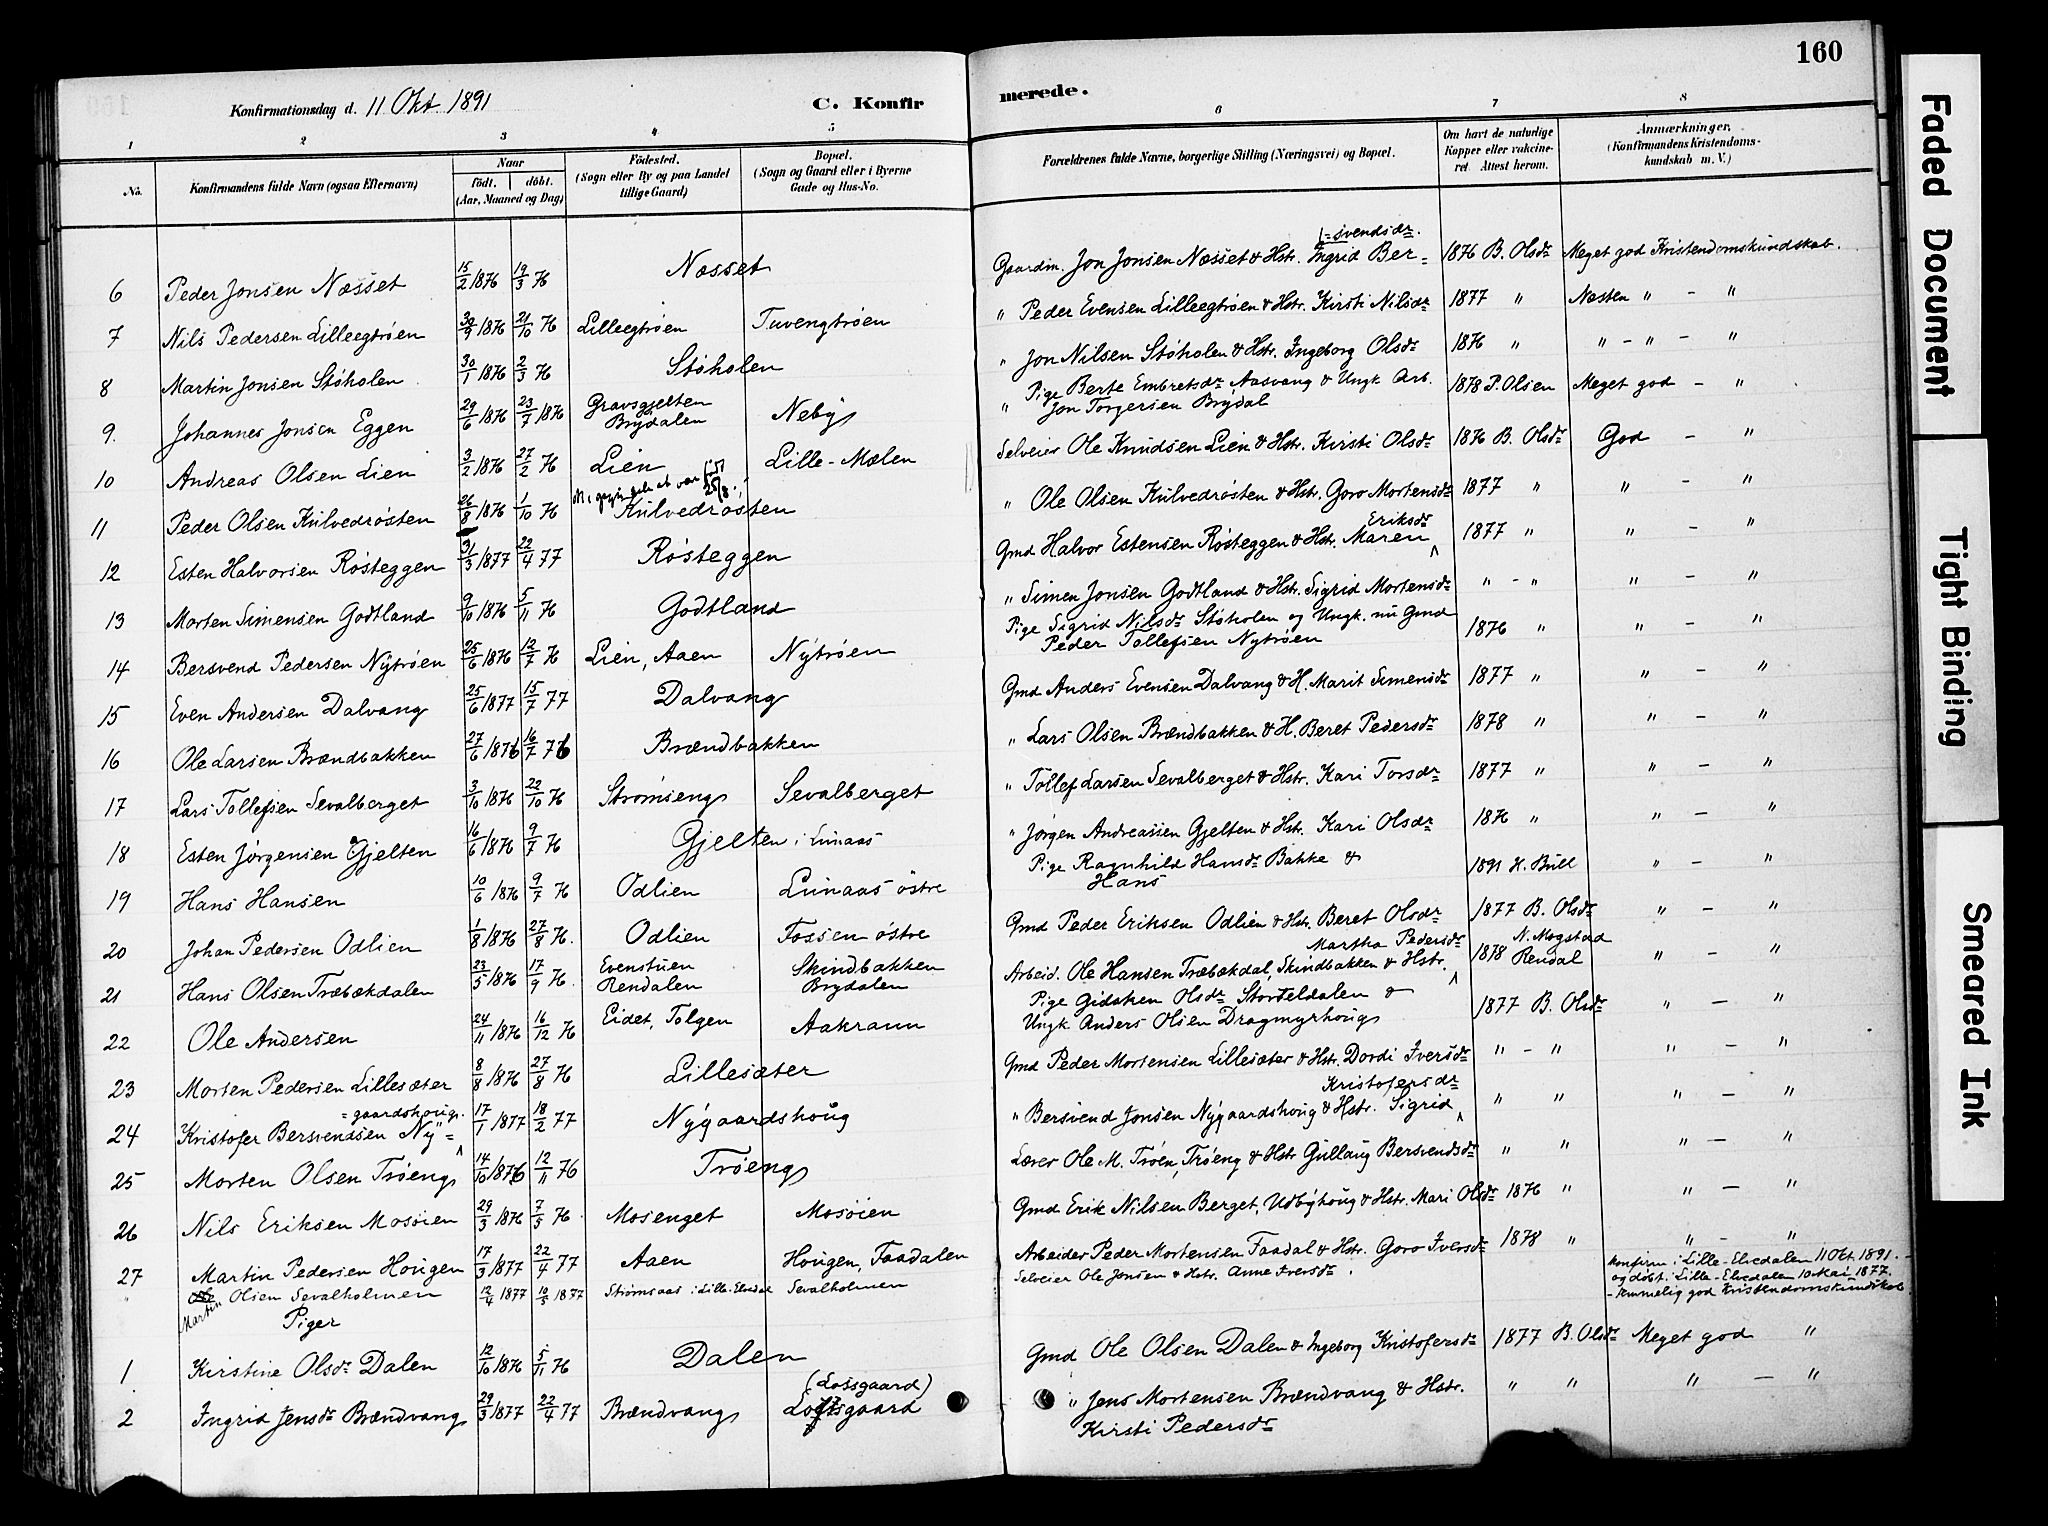 160
Konfirmationsdag d. 11 Okt. 1891
C. Konfirmerede.
1 2 3 4 5 6 7 8
No.
Konfirmandens fulde Navn (ogsaa Efternavn)
Naar
födt. döbt.
(Aar, Maaned og Dag)
Födested.
(Sogn eller By og paa Landet
tillige Gaard)
Bopæl.
(Sogn og Gaard eller i Byerne
Gade og Hus-No.
Forældrenes fulde Navne, borgerlige Stilling (Næringsvei) og Bopæl.
Om havt de naturlige
Kopper eller vakcine-
ret Attest herom.
Anmærkninger.
(Konfirmandens Kristendoms-
kundskab m. V.)
6 Peder Jonsen Næsset 15/2 1876 19/3 76 Næsset Gaardm. Jon Jonsen Næsset & Hstr. Ingrid Ber= =svendsdr. 1876 B. Olsdr Meget god Kristendomskundskab.
7 Nils Pedersen Lilleegtrøen 30/9 1876 21/10 76 Lilleegtrøen Tuvengtrøen " Peder Evensen Lilleegtrøen & Hstr. Kirsti Nilsdr 1877 " Næsten " - "
8 Martin Jonsen Støholen 30/1 1876 2/3 76 Støholen " Jon Nilsen Støholen & Hstr. Ingeborg Olsdr 1876 " " - " - "
9. Johannes Jonsen Eggen 29/6 1876 23/7 1876 Gravsgjelten Brydalen Neby " Pige Berte Embretsdr Aasvang & Ungk Arb. Jon Torgersen Brydal 1878 P. Olsen Meget god - "
10 Andreas Olsen Lien 3/2 1876 27/2 76 Lien Lille-Mælen Selveier Ole Knudsen Lien & Hstr. Kirsti Olsdr 1876 B. Olsdr God - "
11 Peder Olsen Kulvedrøsten 26/8 1876 1/10 76 Kulvedrøsten " Ole Olsen Kulvedrøsten & Hstr. Goro Mortensdr 1877 " " - "
12 Esten Halvorsen Røsteggen 31/3 1877 22/4 77 Røsteggen Gmd Halvor Estensen Røsteggen & Hstr. Maren Eriksdr 1877 " " - "
13 Morten Simensen Godtland 9/10 1876 5/11 76 Godtland " Simen Jonsen Godtland & Hstr. Sigrid Mortensdr " - " " - "
14 Bersvend Pedersen Nytrøen 25/6 1876 12/7 76 Lien, Aaen Nytrøen Pige Sigrid Nilsdr Støholen og Ungk. nu Gmd Peder Tollefsen Nytrøen 1876 " " - "
15 Even Andersen Dalvang 25/6 1877 15/7 77 Dalvang Gmd Anders Evensen Dalvang & H. Marit Simensdr 1877 " " - "
16 Ole Larsen Brændbakken 27/6 1876 16/7 76 Brændbakken " Lars Olsen Brændbakken & H. Beret Pedersdr 1878 " " - "
17 Lars Tollefsen Sevalberget 3/10 1876 22/10 76 Strømseng Sevalberget " Tollef Larsen Sevalberget & Hstr. Kari Torsdr 1877 " " - "
18 Esten Jørgensen Gjelten 16/6 1876 9/7 76 Gjelten i Lunaas " Jørgen Andreassen Gjelten & Hstr. Kari Olsdr 1876 " " - "
19 Hans Hansen 10/6 1876 9/7 76 Odlien Lunaas østre Pige Ragnhild Hansdr Bakke & Hans 1891 H. Bull " - "
20 Johan Pedersen Odlien 1/8 1876 27/8 76. Odlien Fossen østre Gmd Peder Eriksen Odlien & Hstr. Beret Olsdr 1877 B. Olsdr " - "
21 Hans Olsen Træbækdalen 23/5 1876 17/9 76. Evenstuen Rendalen Skindbakken Brydalen Arbeid. Ole Hansen Træbækdal, Skindbakken & Hstr. Martha Pedersdr 1878 N. Mogstad Rendal " - "
22 Ole Andersen 24/11 1876 16/12 76 Eidet, Tolgen Aakrann Pige Gidsken Olsdr Storfeldalen & Ungk Anders Olsen Dragmyrhoug 1877 B. Olsdr " - "
23 Morten Pedersen Lillesæter 8/8 1876 27/8 76 Lillesæter Gmd Peder Mortensen Lillesæter & Hstr. Dordi Iversdr " - " " - "
24 Kristofer Bersvendsen Ny= =gaardshoug. 17/1 1877 18/2 77 Nygaardshoug " Bersvend Jonsen Nygaardshoug & Hstr. Sigrid Kristofersdr " " " - "
25 Morten Olsen Trøeng 14/10 1876 12/11 76 Trøeng Lærer Ole M. Trøen, Trøeng & Hstr Gullaug Bersvendsdr " " " - "
26 Nils Eriksen Mosøien 29/3 1876 7/5 76. Mosenget Mosøien Gmd Erik Nilsen Berget, Udbyhoug & Hstr. Mari Olsdr 1876 " " - "
27 Martin Pedersen Hougen 17/3 1877 22/4 77 Aaen Hougen, Faadalen Arbeider Peder Mortensen Faadal & Hstr. Goro Iversdr 1878 " " - "
" Martin Olsen Sevalholmen 12/4 1877 10/5 1877 Strømsaas i Lille-Elvedal Sevalholmen Selveier Ole Jonsen & Hstr. Anne Iversdr. Konfirm. i Lille-Elvedalen 11 Okt. 1891.
og døbt i Lille-Elvedalen 10 Mai 1877.
- Temmelig god Kristendomskundskab
Piger
1 Kirstine Olsdr Dalen 12/10 1876 5/11 76 Dalen Gmd Ole Olsen Dalen & Ingeborg Kristofersdr 1877 B. Olsdr Meget god "
2 Ingrid Jensdr Brændvang 29/3 1877 22/4 77 Brændvang (Lossgaard) Loftsgaard " Jens Mortensen Brændvang & Hstr. Kirsti Pedersdr " " " - "
Faded Document
Tight Binding
Smeared Ink